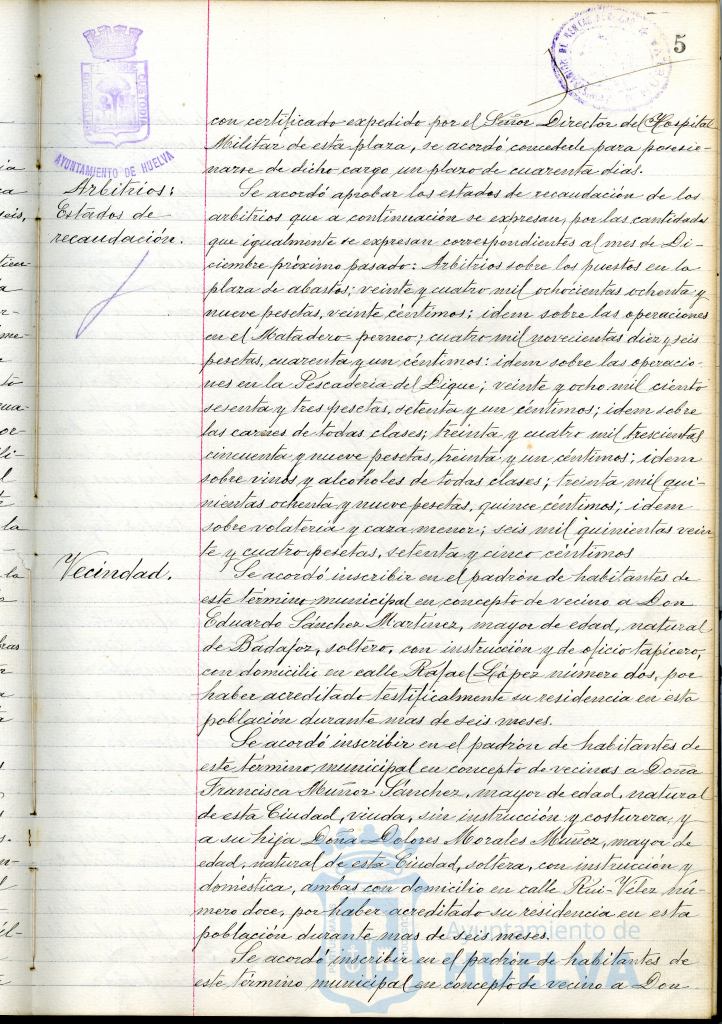 5
AYUNTAMIENTO DE HUELVA
CUSTODIA
con certificado expedido por el Señor Director del Hospital
Militar de esta plaza, se acordó concederle para posesio-
narse de dicho cargo un plazo de cuarenta dias.
Arbitrios:
Estados de
recaudación.
Se acordó aprobar los estados de recaudación de los
arbitrios que a continuación se expresan, por las cantidades
que igualmente se expresan correspondientes al mes de Di-
ciembre próximo pasado: Arbitrios sobre los puestos en la
plaza de abastos; veinte y cuatro mil ochocientas ochenta y
nueve pesetas, veinte céntimos; idem sobre las operaciones
en el Matadero-perneo; cuatro mil novecientas diez y seis
pesetas, cuarenta y un céntimos: idem sobre las operacio-
nes en la Pescaderia del Dique; veinte y ocho mil ciento
sesenta y tres pesetas, setenta y un céntimos; idem sobre
las carnes de todas clases; treinta y cuatro mil trescientas
cincuenta y nueve pesetas, treinta y un céntimos; idem
sobre vinos y alcoholes de todas clases; treinta mil qui-
nientas ochenta y nueve pesetas, quince céntimos; idem
sobre volateria y caza menor; seis mil quinientas vein
te y cuatro pesetas, setenta y cinco céntimos
Vecindad.
Se acordó inscribir en el padrón de habitantes de
este término municipal en concepto de vecino a Don
Eduardo Sánchez Martínez, mayor de edad, natural
de Badajoz, soltero, con instrucción y de oficio tapicero,
con domicilio en calle Rafael López número dos, por
haber acreditado testificalmente su residencia en esta
población durante mas de seis meses.
Se acordó inscribir en el padrón de habitantes de
este término municipal en concepto de vecinas a Doña
Francisca Muñoz Sánchez, mayor de edad, natural
de esta Ciudad, viuda, sin instrucción y costurera, y
a su hija Doña Dolores Morales Muñoz, mayor de
edad, natural de esta Ciudad, soltera, con instrucción y
doméstica, ambas con domicilio en calle Rui-Vélez nú-
mero doce, por haber acreditado su residencia en esta
población durante mas de seis meses.
Se acordó inscribir en el padrón de habitantes de
este término municipal en concepto de vecino a Don
Ayuntamiento de
HUELVA